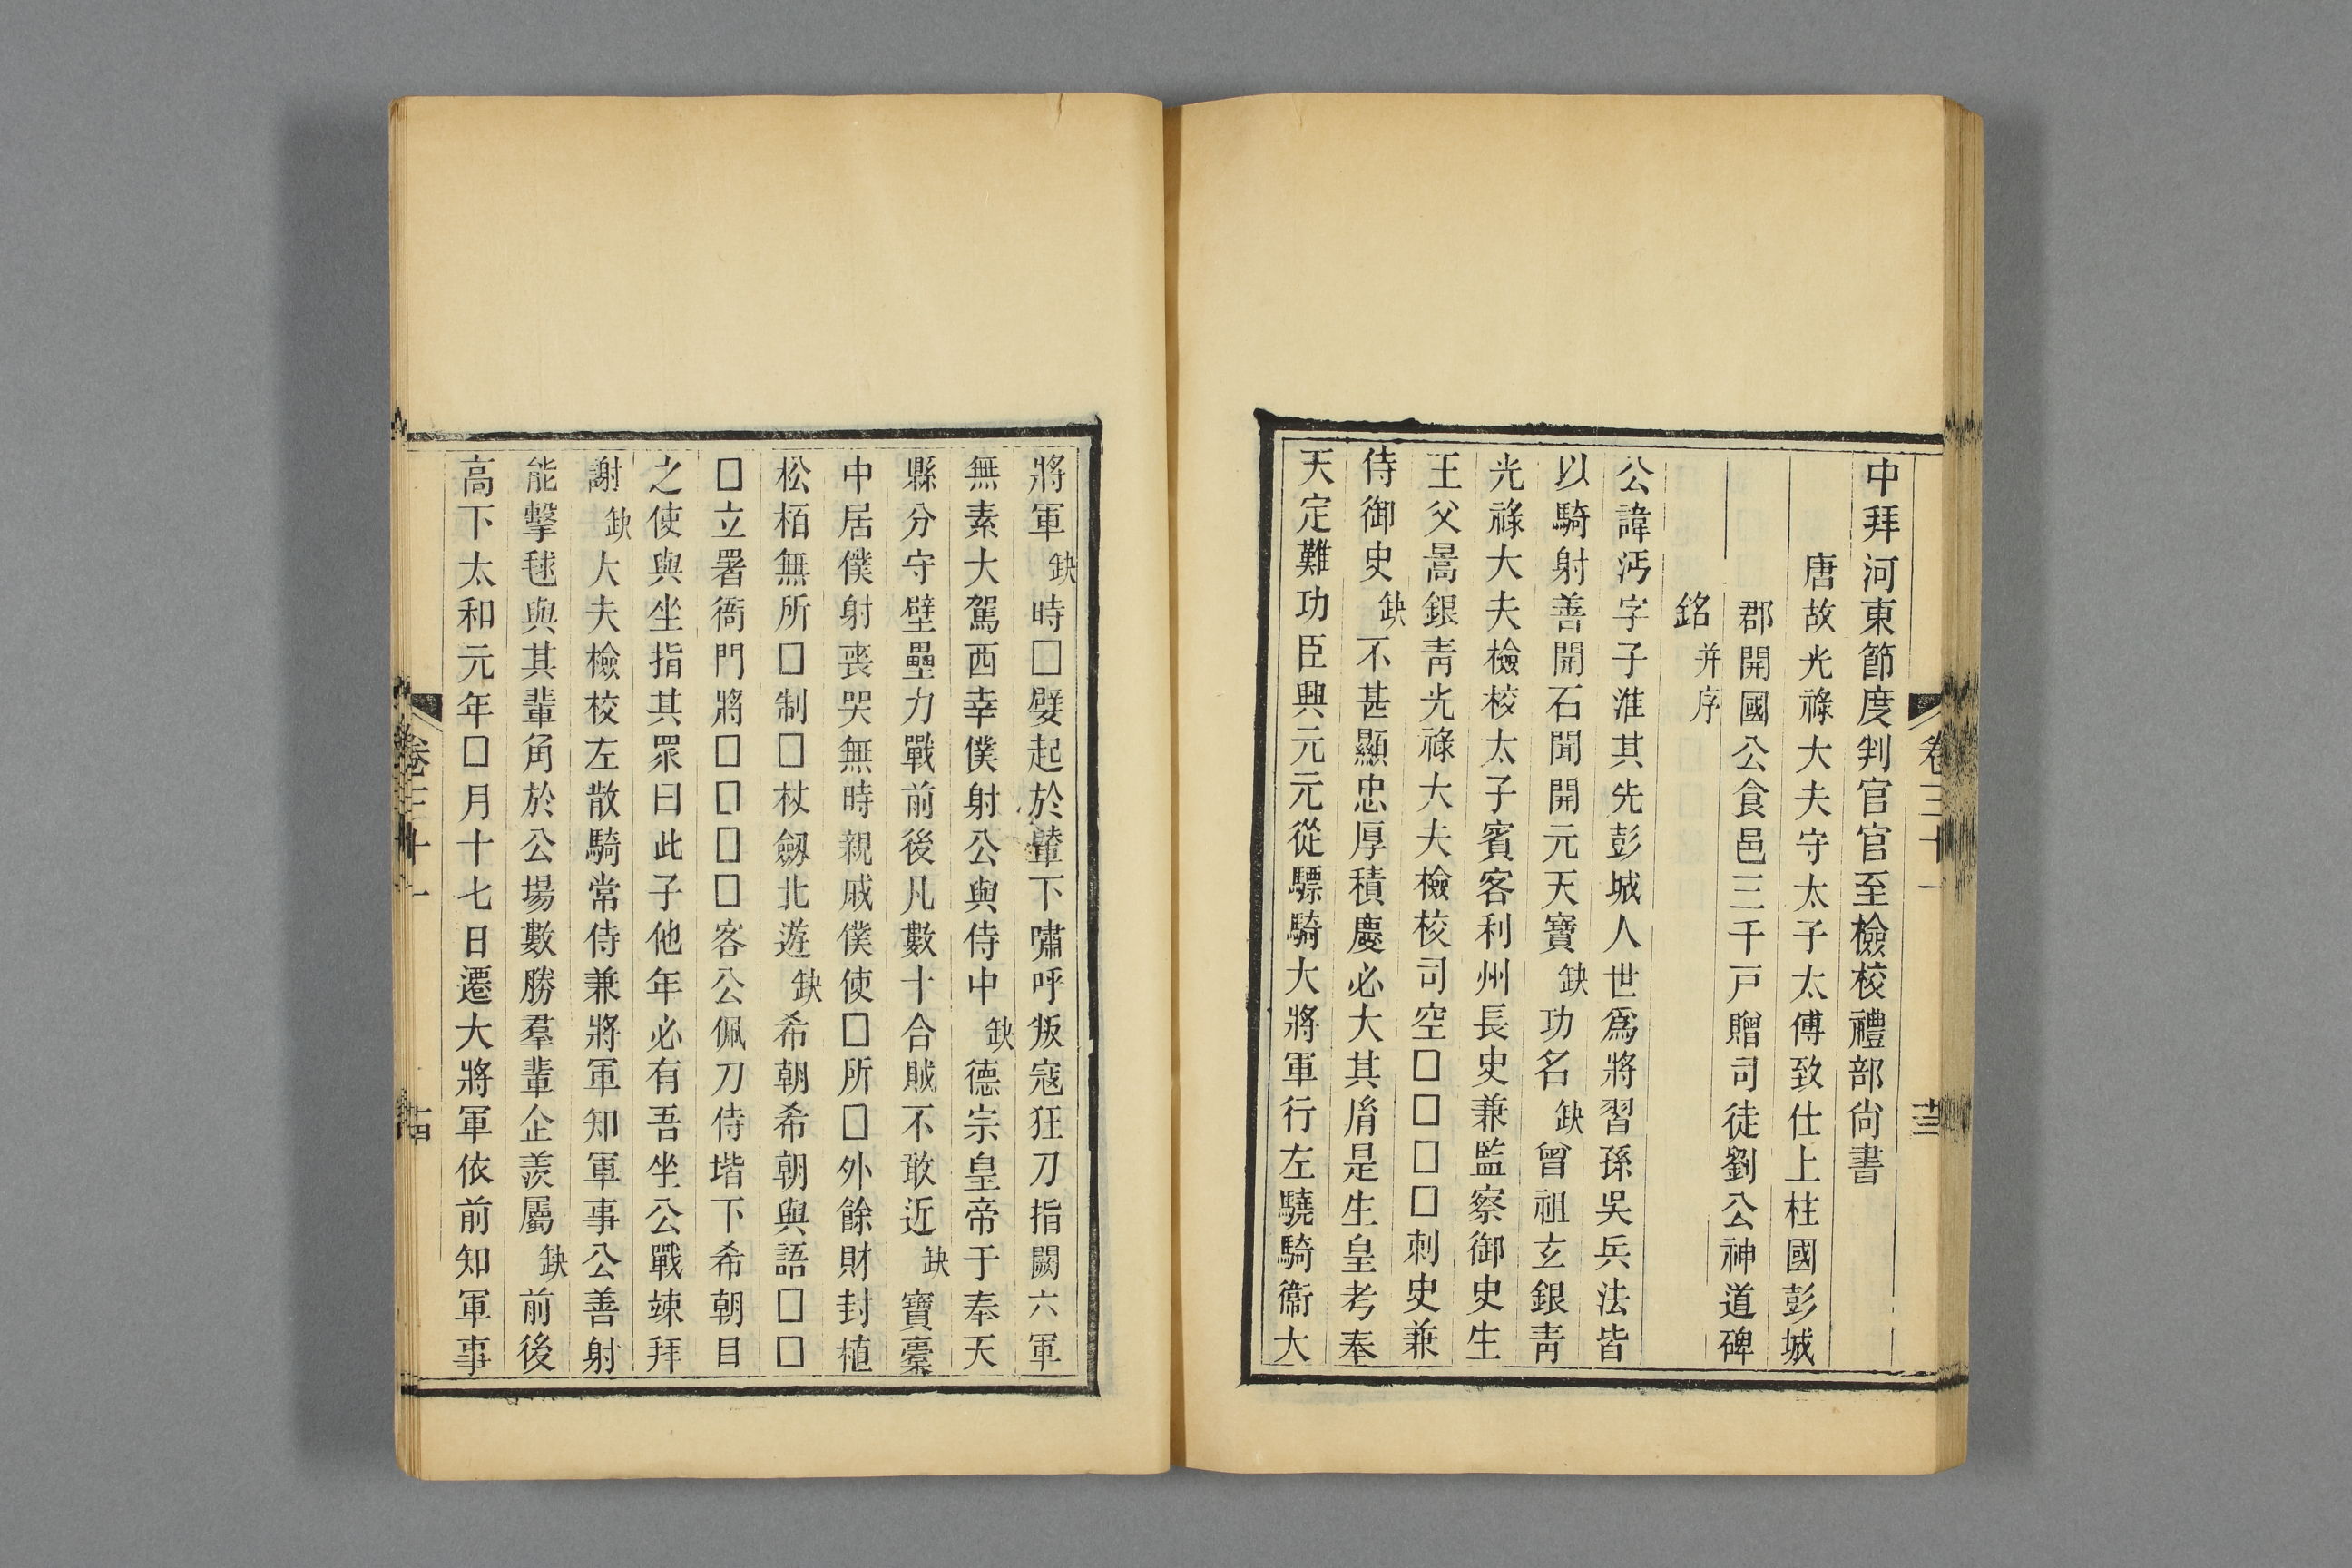 中拜河東節度判官官至檢校禮部尙書
唐故光祿大夫守太子太傅致仕上柱國彭城
郡開國公食邑三千戸贈司徒劉公神道碑
銘并序
公諱沔字子淮其先彭城人世爲將習孫吳兵法皆
以騎射善開石聞開元天寶缺功名缺曾祖玄銀靑
光祿大夫檢校太子賓客利州長史兼監察御史生
王父暠銀靑光祿大夫檢校司空□□□□刺史兼
侍御史缺不甚顯忠厚積慶必大其胤是生皇考奉
天定難功臣興元元從驃騎大將軍行左驍騎衞大
卷三十一
十三
將軍缺時□嬖起於輦下嘯呼叛寇狂刀指闕六軍
無素大駕西幸僕射公與侍中缺德宗皇帝于奉天
縣分守壁壘力戰前後凡數十合賊不敢近缺寶櫜
中居僕射喪哭無時親戚僕使□所□外餘財封植
松栢無所□制□杖劔北遊缺希朝希朝與語□□
□立署衙門將□□□□客公佩刀侍堦下希朝目
之使與坐指其眾曰此子他年必有吾坐公戰竦拜
謝缺大夫檢校左散騎常侍兼將軍知軍事公善射
能擊毬與其輩角於公場數勝羣輩企羨屬缺前後
高下太和元年□月十七日遷大將軍依前知軍事
卷三十一
十四